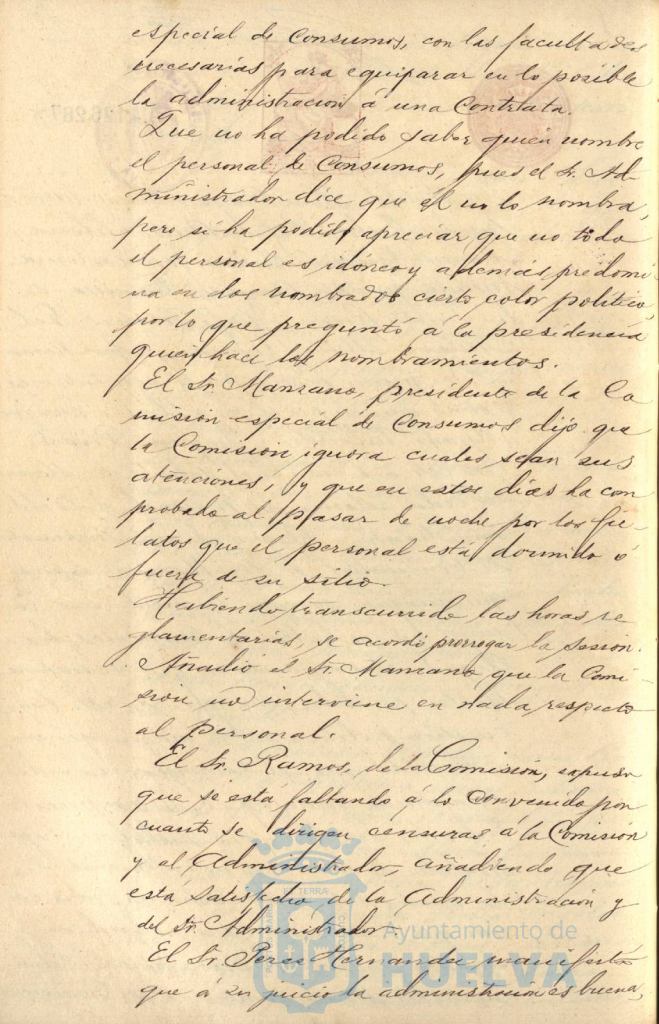 especial de Consumos, con las facultades
necesarias para equiparar en lo posible
la administracion á una Contrata.
Que no ha podido saber quien nombre
el personal de Consumos, pues el Sr. Ad-
ministrador dice que él no lo nombra,
pero si ha podido apreciar que no todo
el personal es idóneo y además predomi
na en los nombrados cierto color politico,
por lo que preguntó á la presidencia
quien hace los nombramientos.
El Sr. Manzano, presidente de la Co
mision especial de Consumos dijo que
la Comision ignora cuales sean sus
atenciones, y que en estos dias ha com
probado al pasar de noche por los fie
latos que el personal está dormido ó
fuera de su sitio.
Habiendo transcurrido las horas re
glamentarias, se acordó prorrogar la sesion.
Anadió el Sr. Manzano que la Comi-
sion no interviene en nada respecto
al personal.
El Sr. Ramos, de la Comisión, expuso
que se está faltando á lo convenido por
cuanto se dirigen censuras á la Comisión
y al Administrador, añadiendo que
está satisfecho de la Administración y
del Sr. Administrador.
El Sr. Perez Hernandez manifestó
que á su juicio la administracion es buena,
Ayuntamiento de
HUELVA